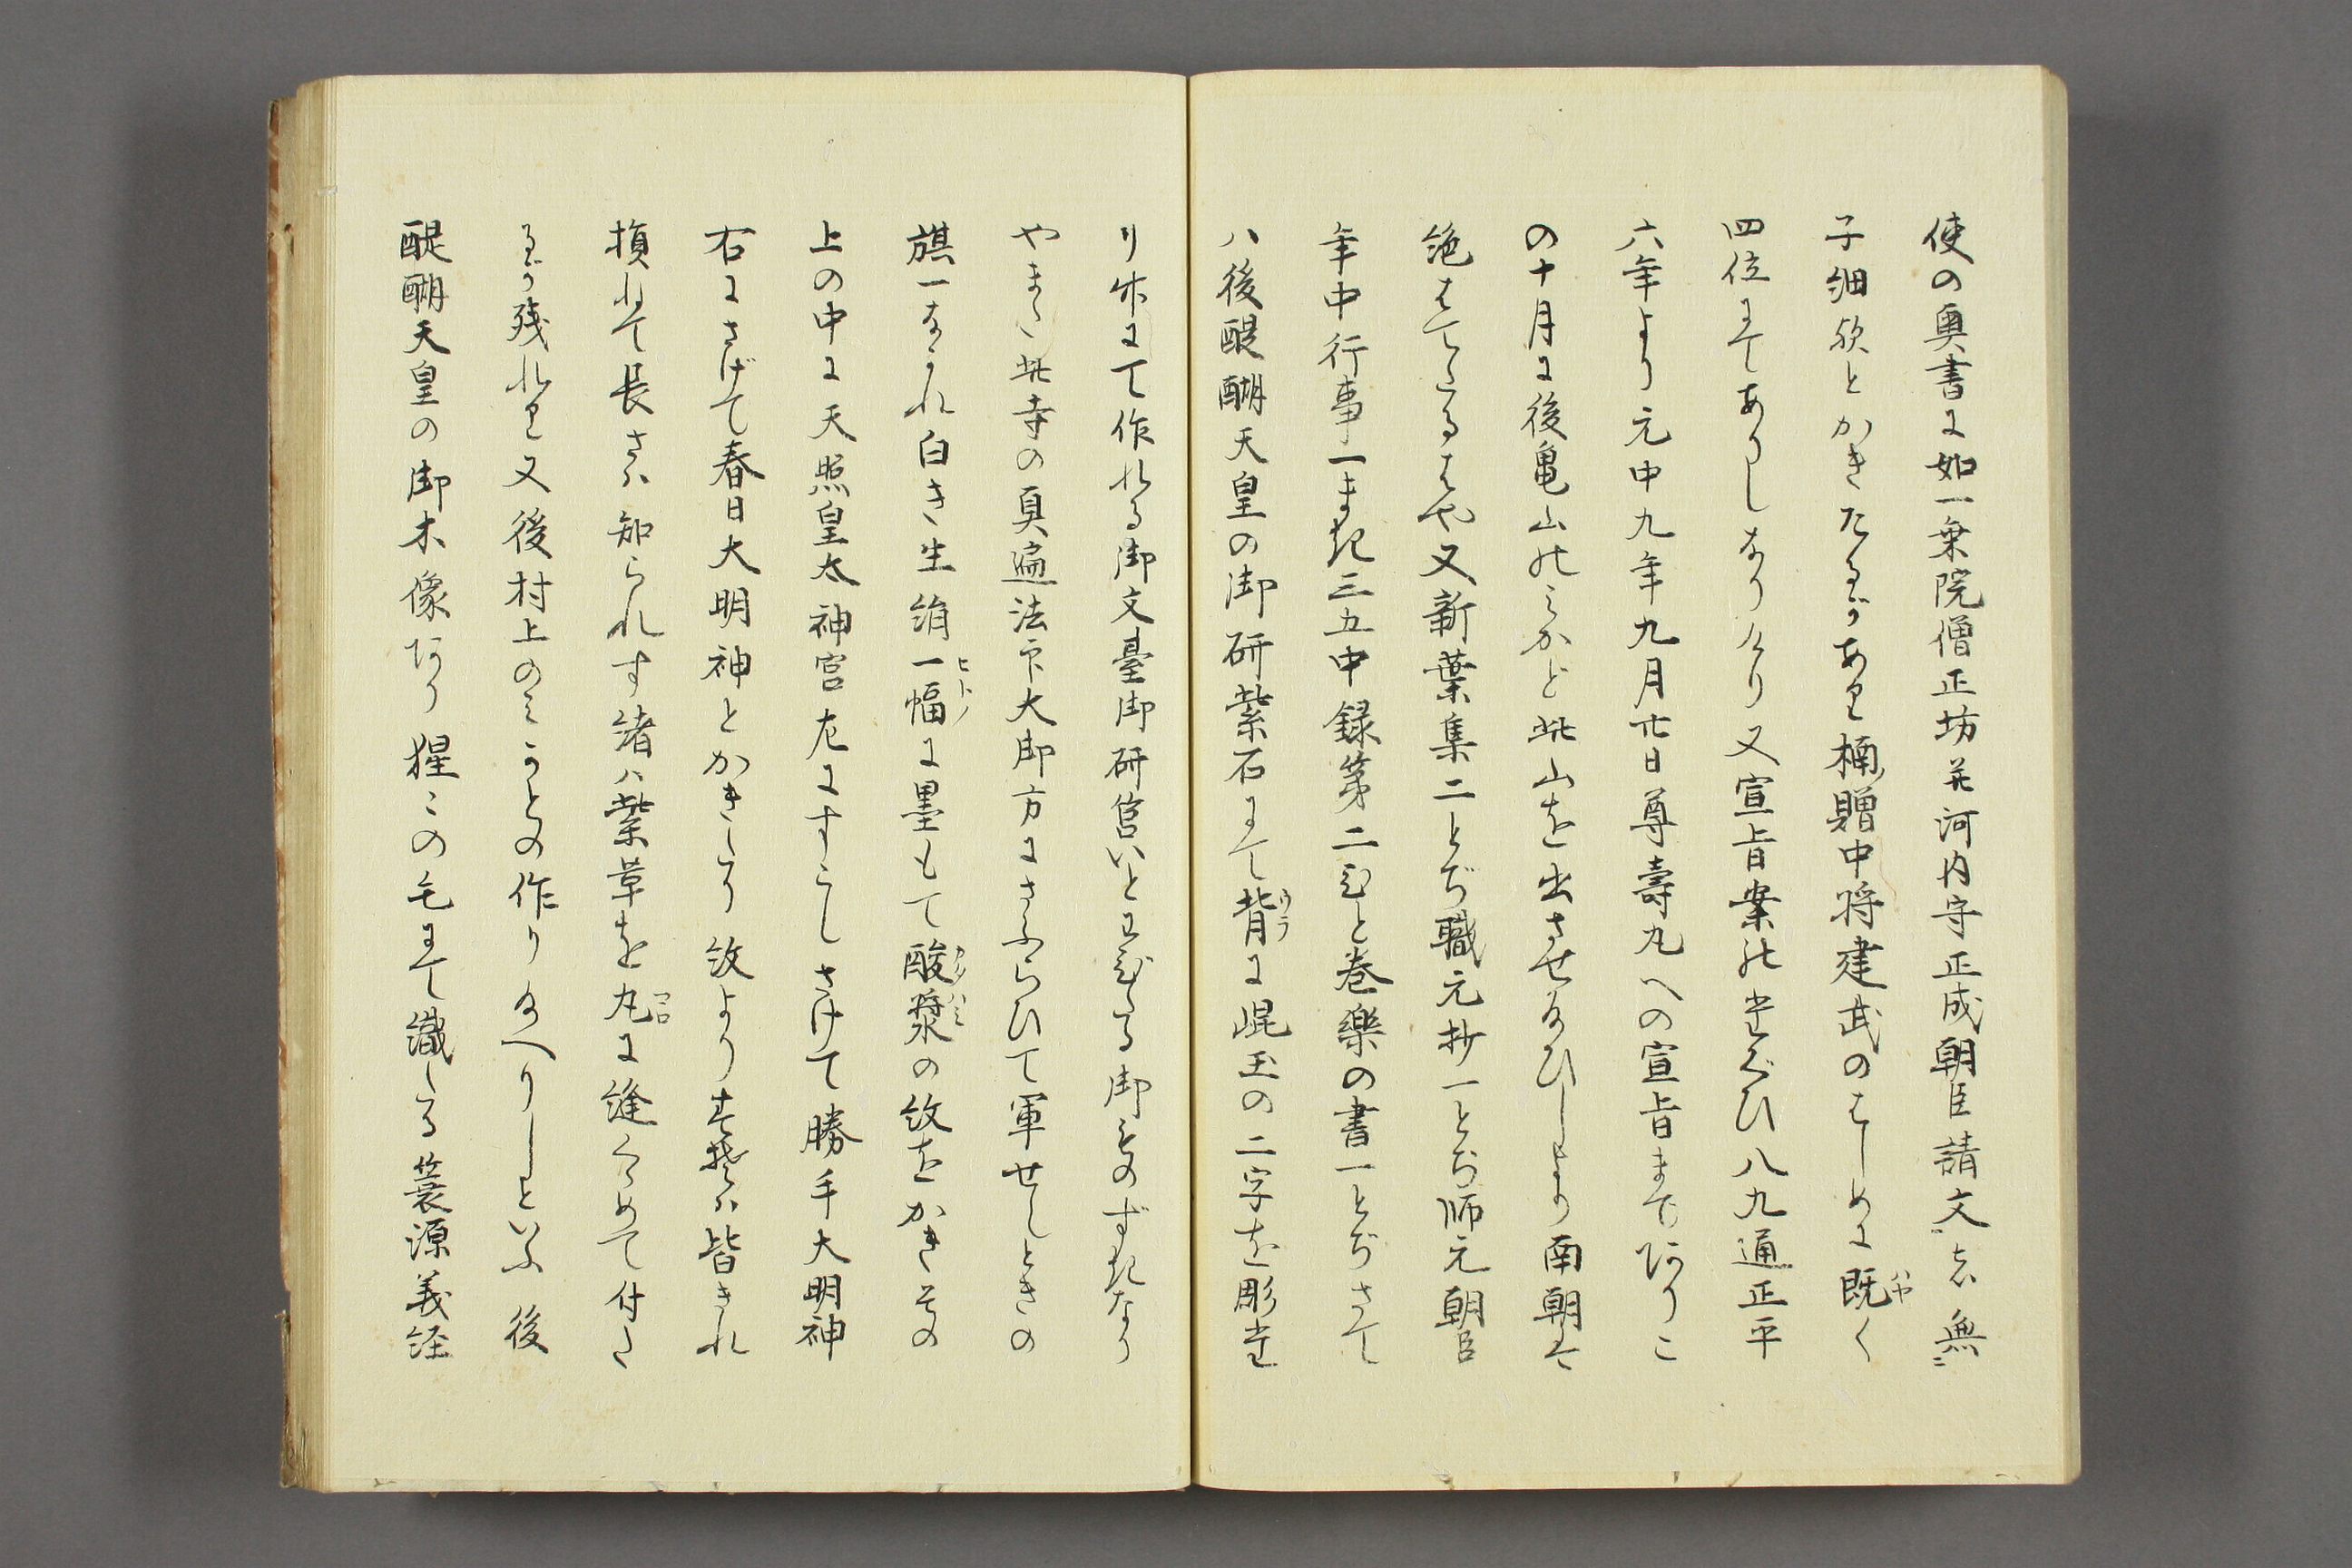 使の奥書に如一乗院僧正坊并河内守正成朝臣請文者無
子細欤とかきたるがあり楠贈中将建武のはじめに既く
四位にてありしなりけり又宣旨案のたぐひ八九通正平
六年より元中九年九月廿日尊壽丸への宣旨までありこ
の十月に後亀山のみかど此山を出させ給ひしより南朝は
絶はてたるはや又新葉集二とぢ職元抄一とぢ師元朝臣
年中行事一まき三五中録第二ひと巻樂の書一とぢさて
ハ後醍醐天皇の御研紫石にて背に崐玉の二字を彫た
り木にて作れる御文臺御研筥いとわびたる御ものずきなり
やまた此寺の真遍法印大御方にさふらひて軍せしときの
旗一ながれ白き生絹一幅に墨もて酸漿の紋をかきその
上の中に天照皇太神宮左にすこしさげて勝手大明神
右にさげて春日大明神とかきたり紋よりすそハ皆きれ
損れて長さハ知られす緒ハ紫革を丸に縫くゝめて付た
るが残れり又後村上のみかとの作り給へりしといふ後
醍醐天皇の御木像あり猩々の毛にて織たる蓑源義経